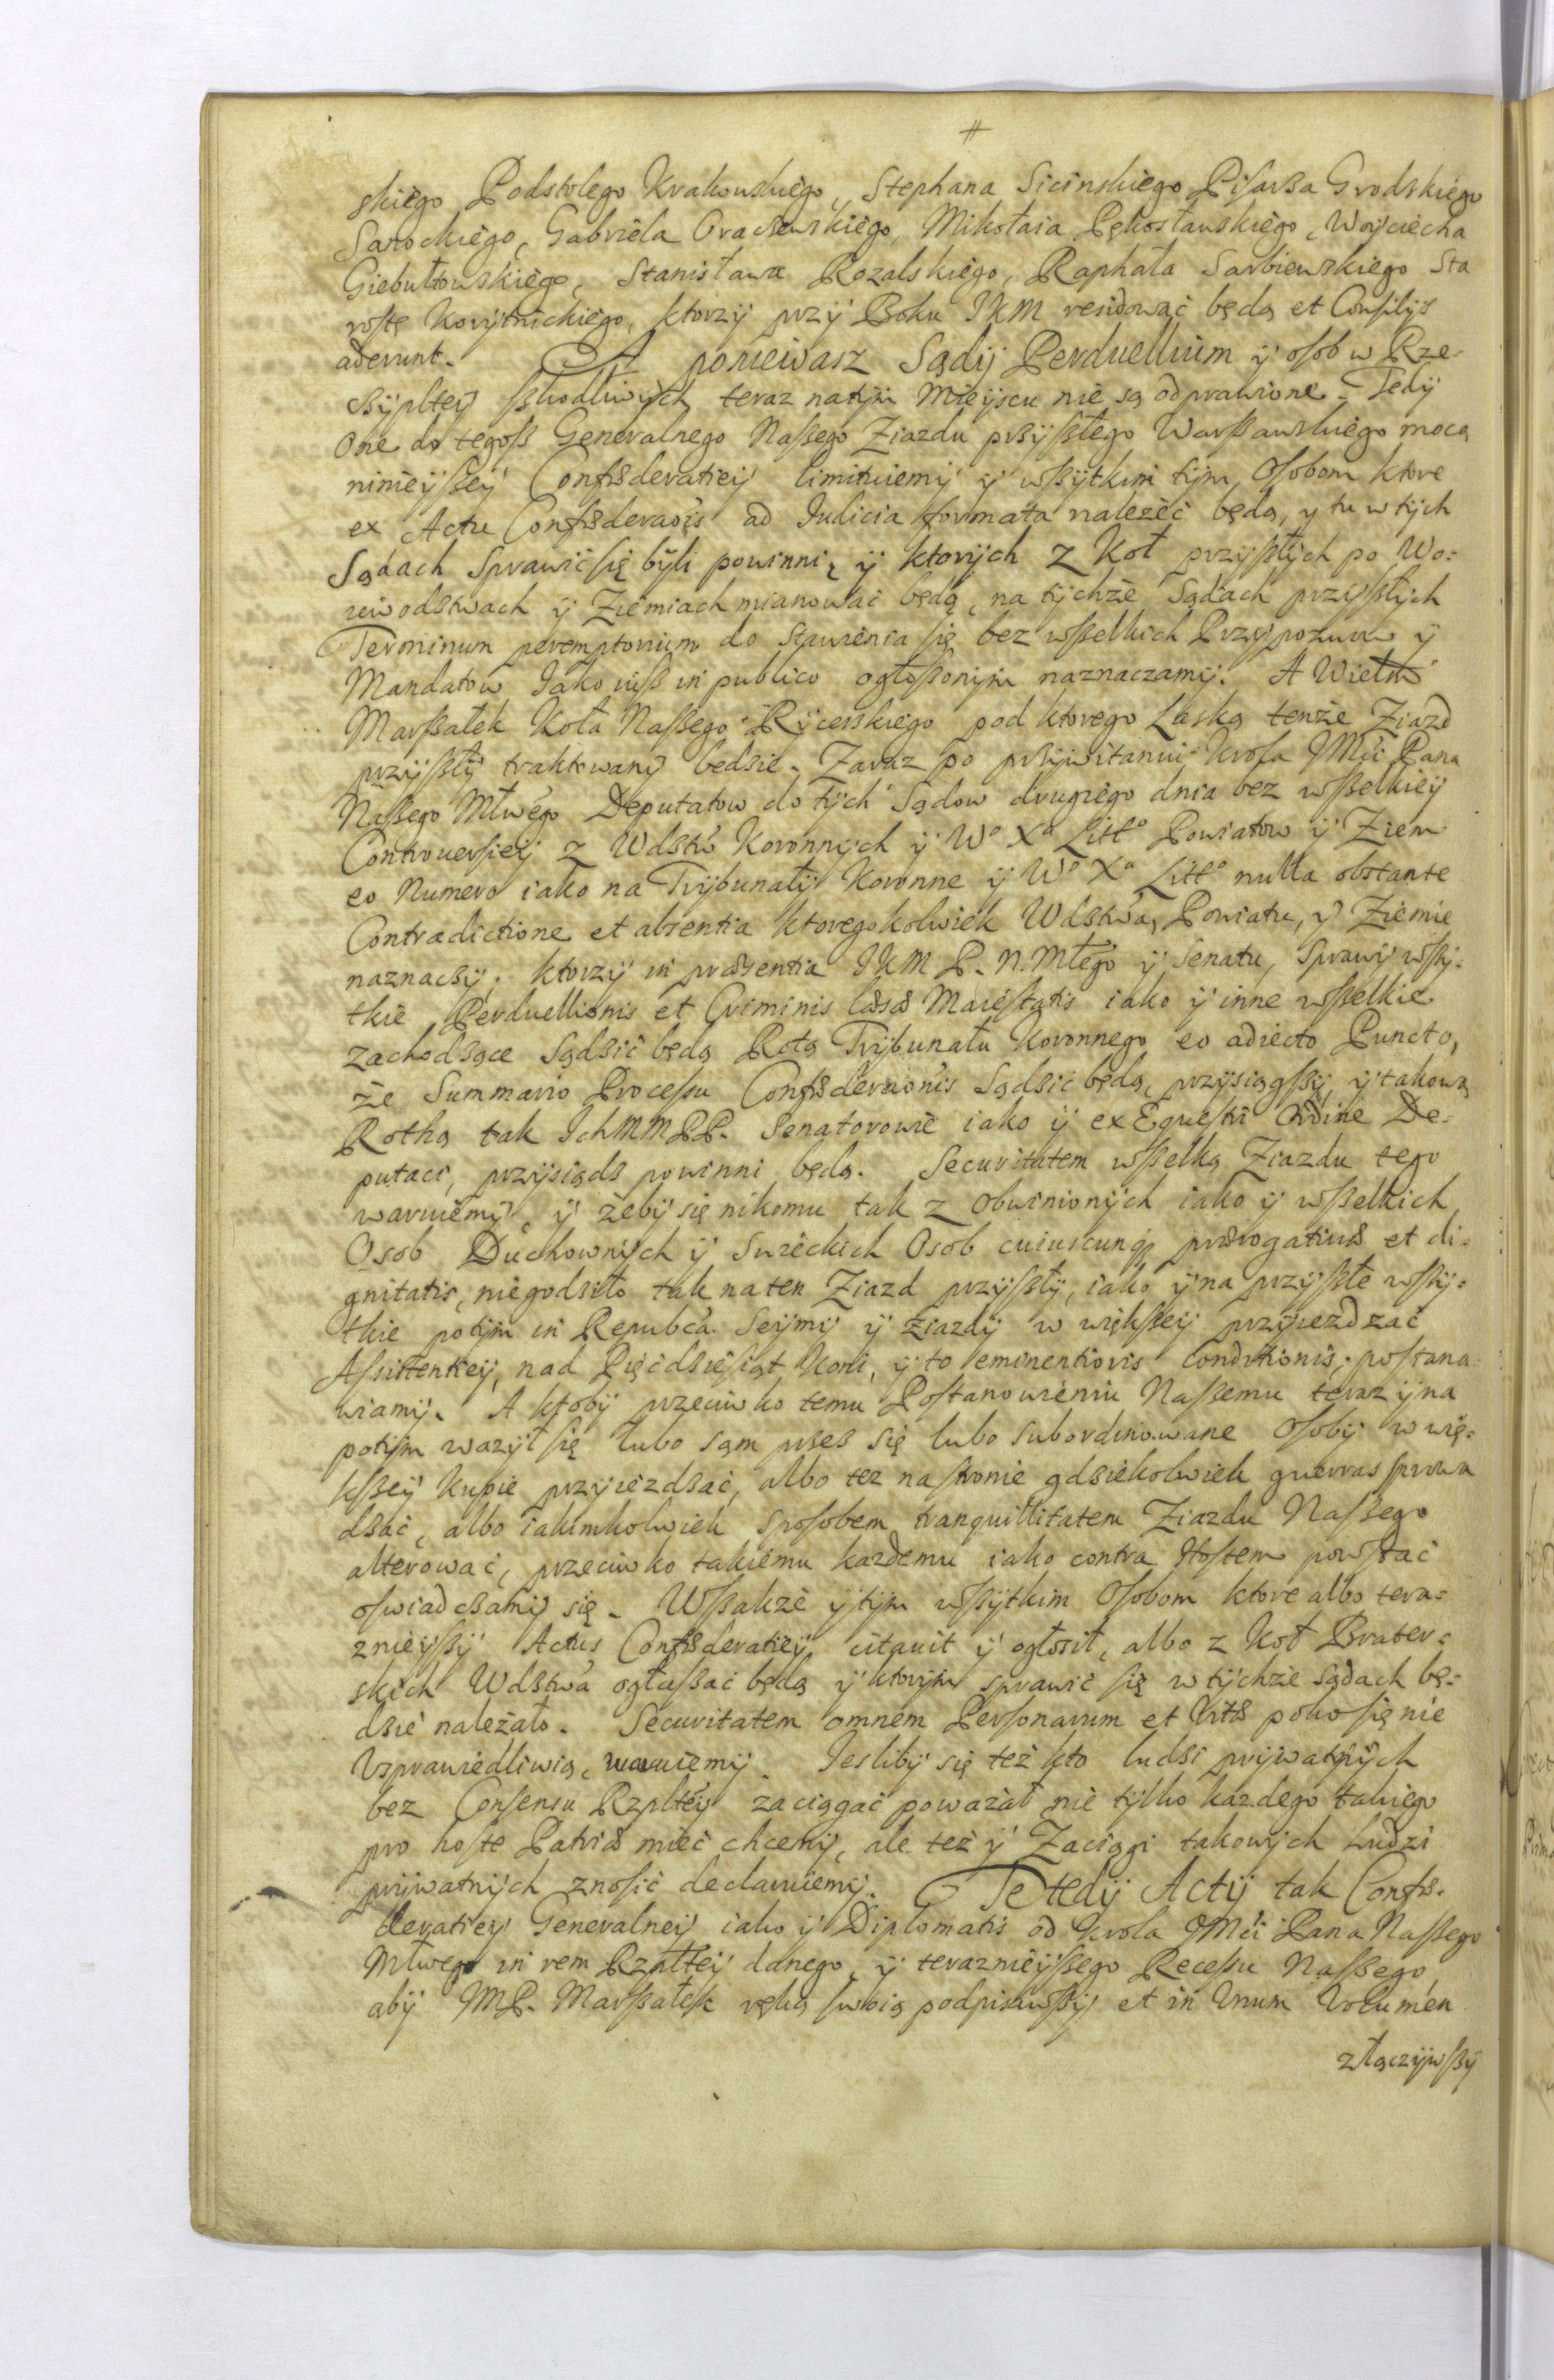 #
skiego Podstolego Krakowskiego, Stephana Sicinskiego Pisarza Grodskiego
Sanockiego, Gabriela Oraczewskiego, Mikołaia Pękosławskiego, Woyciecha
Giebułtowskiego, Stanisława Rozalskiego, Raphała Sarbiewskiego Sta
rostę Korytnickiego, ktorzy przy Boku JKM residować będą et Consilys
aderunt. A poniewasz Sądy Perduellium y osob w Rze-
czypltey skodliwych teraz natym Mieyscu nie są odprawione. Tedy
One do tegoss Generalnego Naszego Ziazdu przyszłego Warszawskiego mocą
ninieyszey Confæderatiey limituiemy y wszytkim tym Osobom ktore
ex Actu Confæderaõis ad Iudicia formata należeć będą, y tu w tych
Sądach Sprawić się byli powinni, y ktorych z Koł przyszłych po Wo-
iewodstwach y Ziemiach mianować będą, na tychże Sądach przyszłych
Terminum peremptorium do Stawienia się bez wszelkich Przypozwow y
Mandatow Jako iusz in publico ogłoszonym naznaczamy. A
Marszałek Koła Naszego Rycerskiego pod ktorego Laską tenże Ziazd
przyszły traktowany bedzie. Zaraz po przywitaniu Krola JMći Pana
Naszego Młwego Deputatow do tych Sądow drugiego dnia bez wszelkiey
Controuersiey z Wdstw Koronnych y Wº Xª Littº Powiatow y Ziem
eo Numero iako na Trybunały Koronne y Wº Xª Littº nulla obstante
Contradictione et absentia ktoregokolwiek Wdstwa, Powiatu, y Ziemie
naznaczy. ktorzy in præsentia JKM P. N. Młego y Senatu, Sprawy wszy-
tkie Perduellionis et Criminis læsæ Maiestatis iako y inne wszelkie
zachodsące Sądsić będą Rotą Trybunału Koronnego eo adiecto Puncto,
że Summario Processu Confæderaõnis Sądsić będą, przysiągszy y takową
Rothą tak IchMMPP. Senatorowie iako y ex Equestri Ordine De-
putaci, przysiąds powinni będą. Securitatem wszelką Ziazdu tego
waruiemy, y żeby się nikomu tak z obwinionych iako y wszelkich
Osob Duchownych y Swieckich Osob cuiuscunq prærogatiuæ et di-
gnitatis, niegodsiło tak na ten Ziazd przyszły, iako y na przyszłe wszy-
tkie potym in Republca Seymy y Ziazdy w większey przyiezdzać
Assistentiey, nad Pięćdziesiąt Koni, y to eminentioris Conditionis, postana-
wiamy. A ktoby przeciwko temu Postanowieniu Naszemu teraz y na
potym wazył się lubo sam przes się lubo subordinowane Osoby w wię-
kszey kupie przyiezdsać, albo tez na stronie gdsiekolwiek guerras prowa
dsać, albo iakimkolwiek sposobem tranquillitatem Ziazdu Naszego
alterować, przeciwko takiemu każdemu iako contra Hostem powstać
oswiadczamy się. Wszakże y tym wszytkim Osobom ktore albo tera-
znieyszy Actus Confæderatiey citauit y ogłosił, albo z Koł Brater-
skich Wdstwa ogłaszać będą y ktorym sprawić się w tychże sądach bę-
dsie należało. Securitatem omnem Personarum et Vitæ poko się nie
Vsprawiedliwią, waruiemy. Iesliby się też kto ludsi prywatnych
bez Consensu Rzpltey zaciągać poważał nie tylko każdego takiego
pro hoste Patriæ mieć chcemy, ale też y Zaciągi takowych Ludzi
prywatnych znosić declaruiemy. Te tedy Acty tak Confæ-
deratiey Generalney iako y Diplomatis od Krola JMći Pana Naszego
Młwego in rem Rzpltey danego, y teraznieyszego Recessu Naszego,
aby JMP. Marszałek ręką swoią podpisawszy et in Vnum Volumen
złączywszy